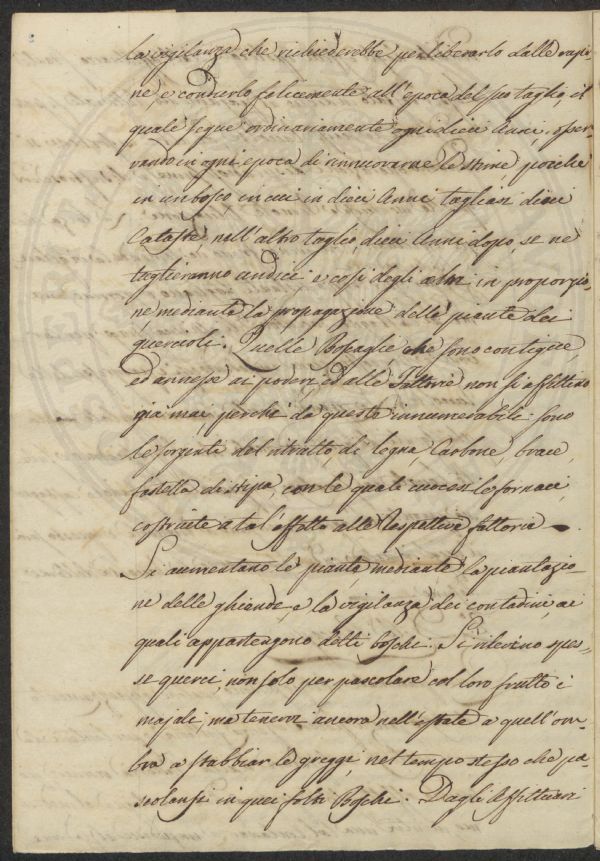 la vigilanza che richiederebbe per liberarlo dalle rapi-
ne e condurlo felicemente all'epoca del suo taglio, il
quale segue ordinariamente ogni dieci Anni, osser-
vando in ogni epoca di rinnuovarne le stime poiche
in un bosco in cui in dieci Anni tagliasi dieci
Cataste, nell'altro taglio dieci Anni dopo, se ne
taglieranno undici, e così degli altri in proporzio-
ne, mediante la propagazione delle piante dei
quercioli. Quelle Boscaglie che sono contigue,
ed annesse ai poderi, ed alle Fattorie non si affittino
gia mai, perchè da queste innumerabili sono
le sorgenti del ritratto, di legna, Carbone, brace,
fastella di stipa, con le quali cuocesi le fornaci,
costruite a tal'effetto alle respettive fattorie.
Si aumentano le piante, mediante la piantazio-
ne delle ghiande, e la vigilanza dei contadini, ai
quali appartengono detti boschi. Si rilevino spes-
se querci, non solo per pascolare col loro frutto i
majali, ma tenervi ancora nell'estate a quell'om-
bra a stabbiar le greggi, nel tempo stesso che pa-
scolansi in quei folti Boschi. Dagli Affittuari